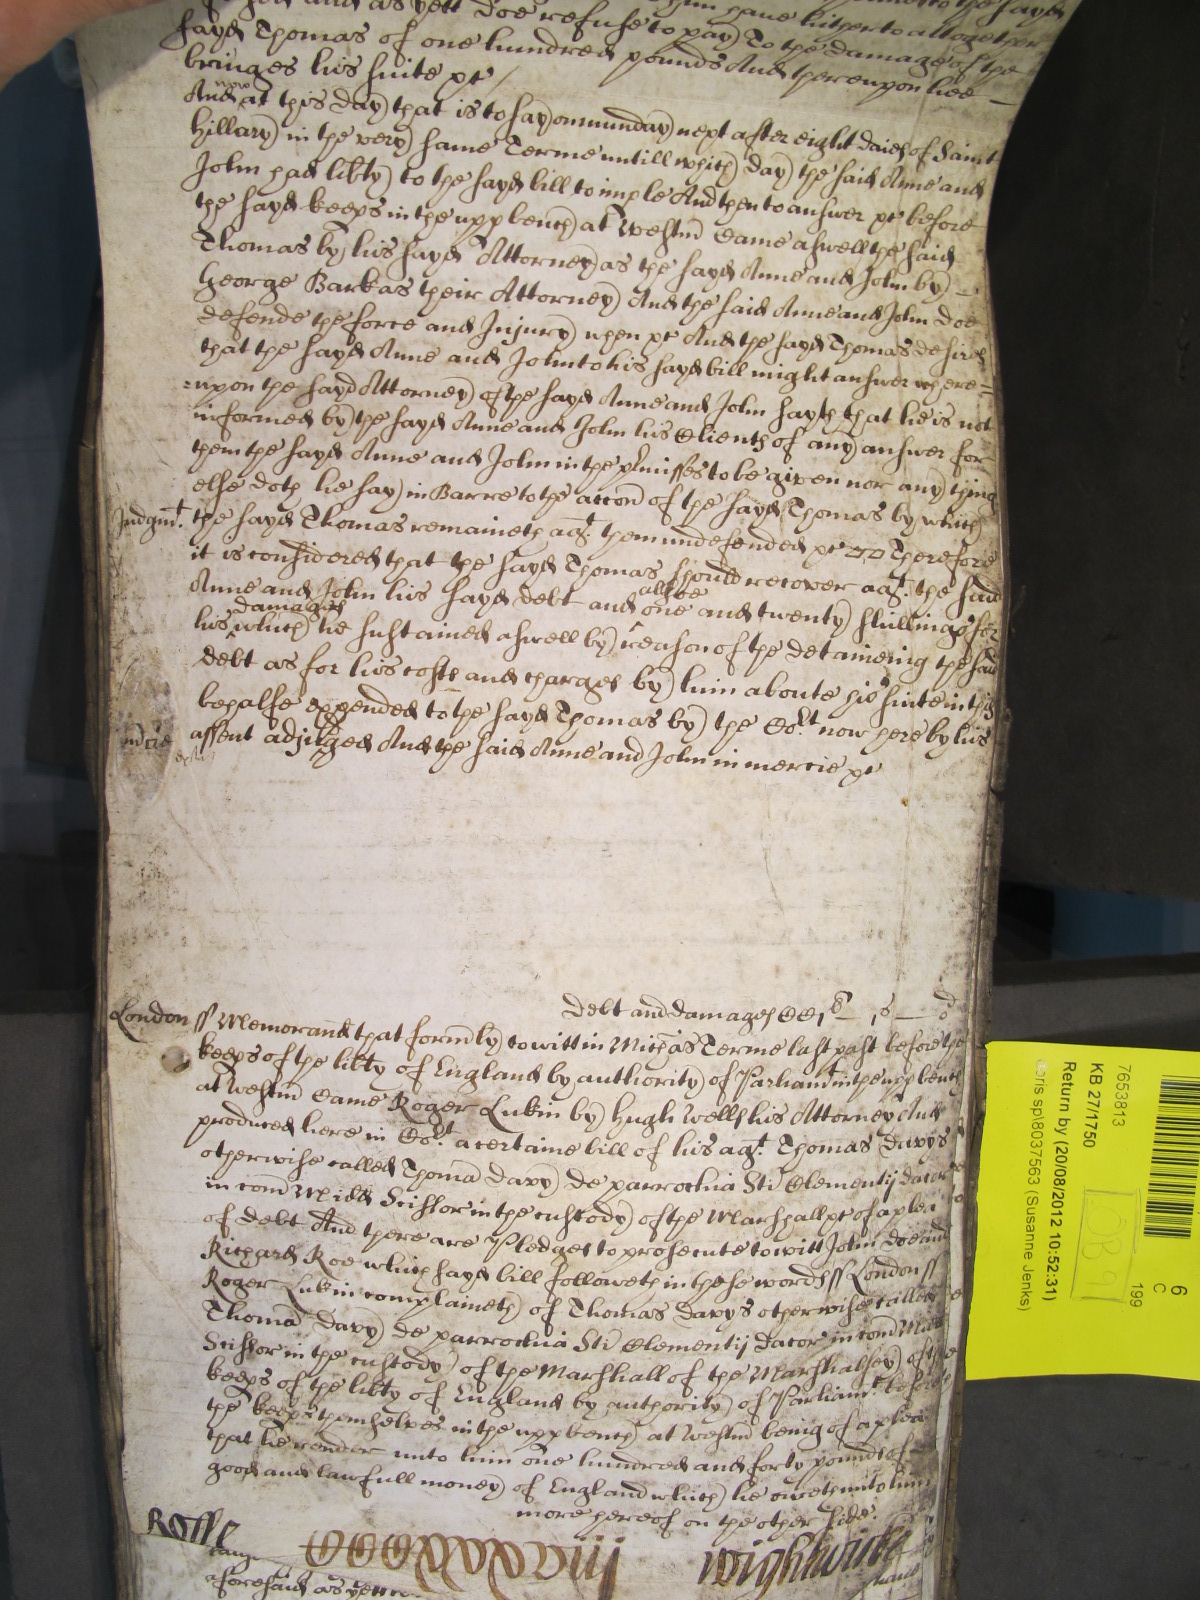 John and as yett doe refuse to pay) To the damage of the
sayd Thomas of one hundred pounds And thereupon hee
bringes his suite &c
And now at this day) that is to say on munday) next after eight daies of Saint
Hillary) in the very) same Terme untill which) day) the said Anne and
John had libty) to the sayd bill to imple And then to answer &c before
the sayd keeps in the upp bench) at Westm Came aswell the said
Thomas by) his sayd Attorney) as the sayd Anne and John by)
George Barkas their Attorney) And the said Anne and John doe
defende the force and Injury) when &c And the sayd Thomas desires
that the sayd Anne and John to his sayd bill might answer where=
=upon the sayd Attorney) of the sayd Anne and John sayth that he is not
informed by) the sayd Anne and John his Clients of any) answer for
them the sayd Anne and John in the pmisses to be given nor any) thing
else doth he say) in Barre to the accon of the sayd Thomas by which)
Judgmt. the sayd Thomas remaineth agt. them undefended &c Therefore
it is considered that the sayd Thomas should recover agt. the said
Anne and John his sayd debt and alsoe one and twenty) shillings for
his damages which) he sustained aswell by) reason of the deteineing the said
debt as for his costs and charges by) him aboute his suite in this
behalfe expended to the sayd Thomas by) the Cort. now here by his
mcie assent adjudged And the said Anne and John in mercie &c
Debt and damages
London ss Memorand that formly) to witt in Michas Terme last past before the
keeps of the libty of England by authority) of Parliamt in the upp bench
at Westm Came Roger Lukin by) Hugh Wells his Attorney And
produced here in Cort. a certaine bill of his agt. Thomas Davys
otherwise called Thoma Davy) de parrochia Sti Clementij Dacor
in com Midd Scissor in the custody) of the Marshall &c of a plea
of debt And there are Pledges to prosecute to witt John Doe and
Richard Roe which sayd bill followeth in these words ss London ss
Roger Lukin complaineth) of Thomas Davys otherwise called
Thoma Davy) de parrochia Sti Clementij Dacor in com Midd
Scissor in the custody) of the Marshall of the Marshalsey) of the
keeps of the libty of England by authority) of Parliamt. before
the keeps themselves in the upp bench) at Westm being of a plea
that he render unto him one hundred and forty pounds of
good and lawfull money) of England which) he oweth unto him
more hereof on the other side.
Rolle Wightwick
aforesaid as yett
7653813
KB 27/1750
Return by (20/08/2012 10:52:31)
sp\8037563 (Susanne Jenks)
6
C
199